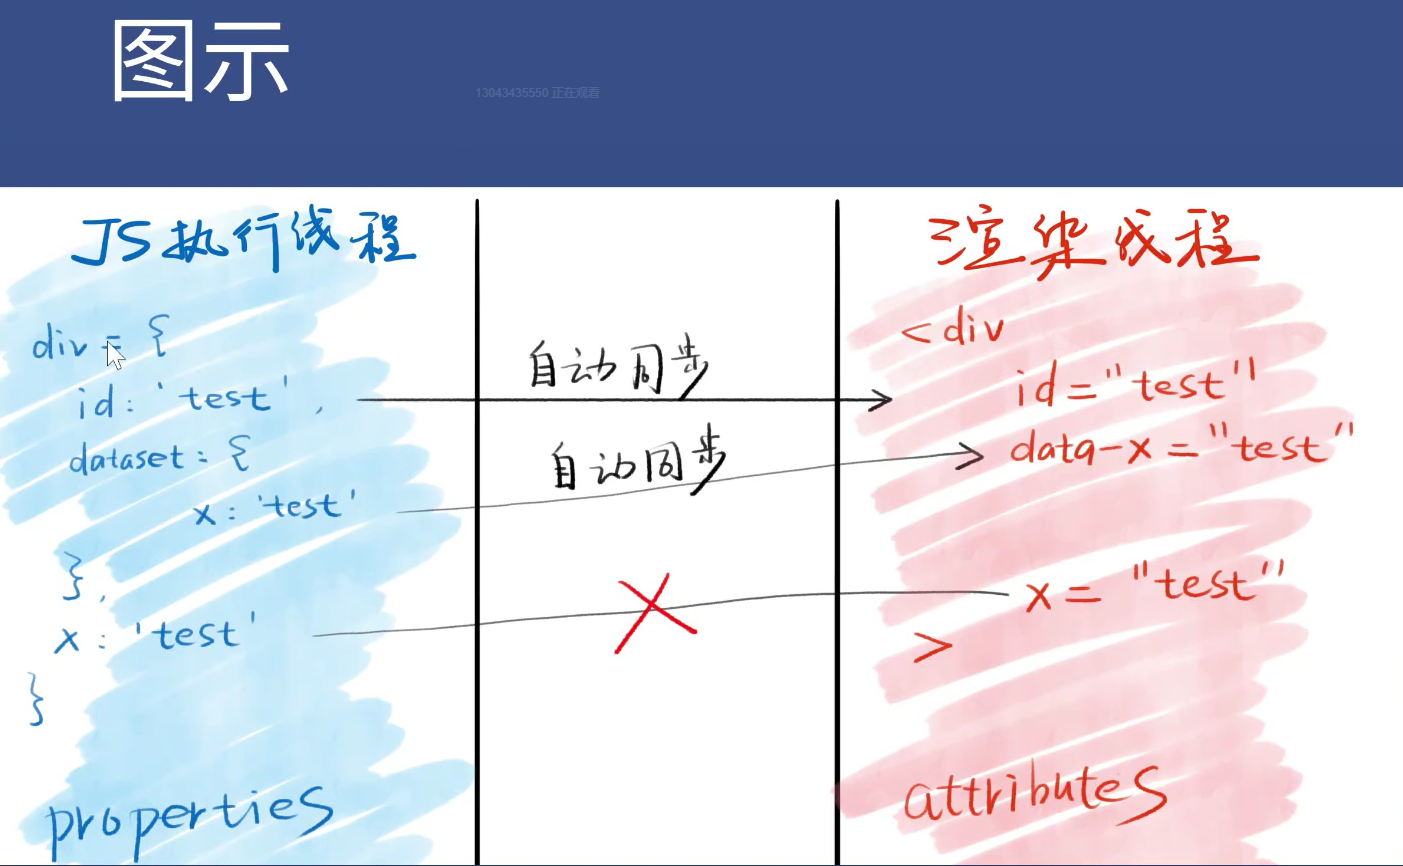 图示
13043435550 正在观看
JS执行线程
div = {
id: 'test',
dataset: {
x: 'test'
},
x: 'test'
}
properties
自动同步
自动同步
渲染线程
<div
id="test"
data-x="test"
x="test"
>
attributes